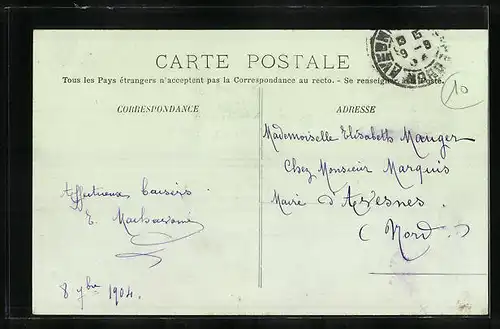 CARTE POSTALE
Tous les Pays étrangers n'acceptent pas la Correspondance au recto. - Se renseigner à la Poste.
CORRESPONDANCE
ADRESSE
10
Mademoiselle Elisabeth Mauger
Chez Monsieur Marquis
Maire d'Avesnes
(Nord.)
Affectueux baisers
E.
8 7bre 1904.